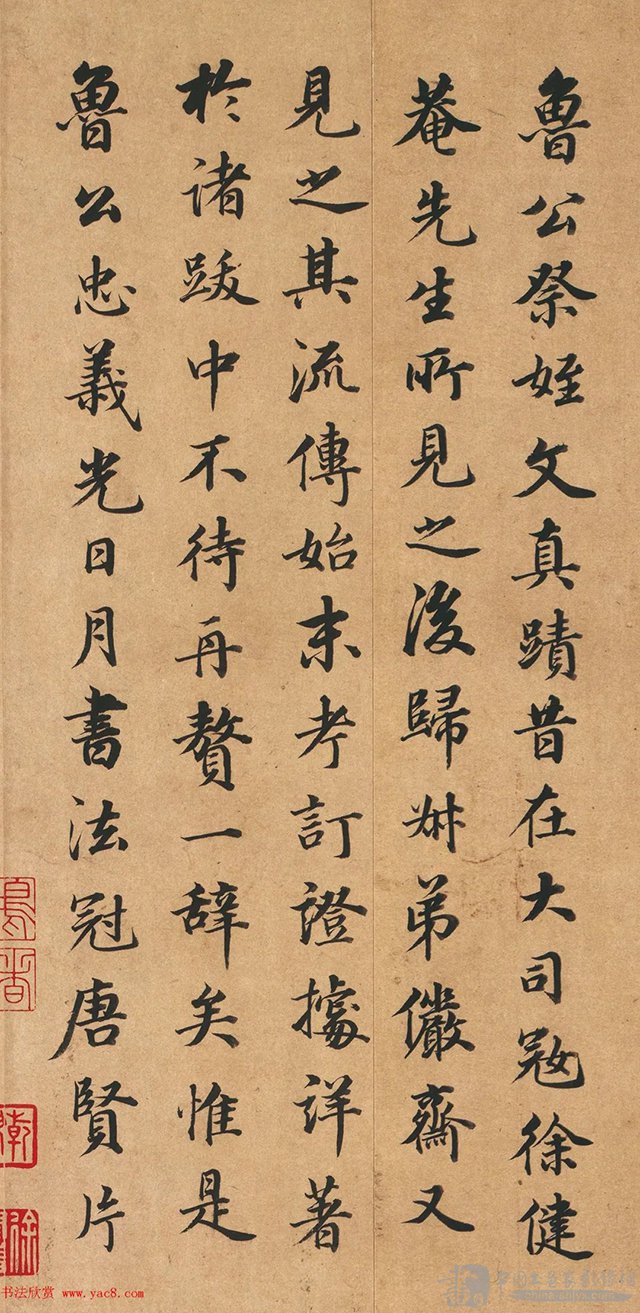 魯公祭姪文真蹟昔在大司寇徐健
菴先生所見之後歸叔弟儼齋又
見之其流傳始末考訂證據詳著
於诸跋中不待再贅一辞矣惟是
魯公忠義光日月書法冠唐賢片
书法欣赏 www.yac8.com